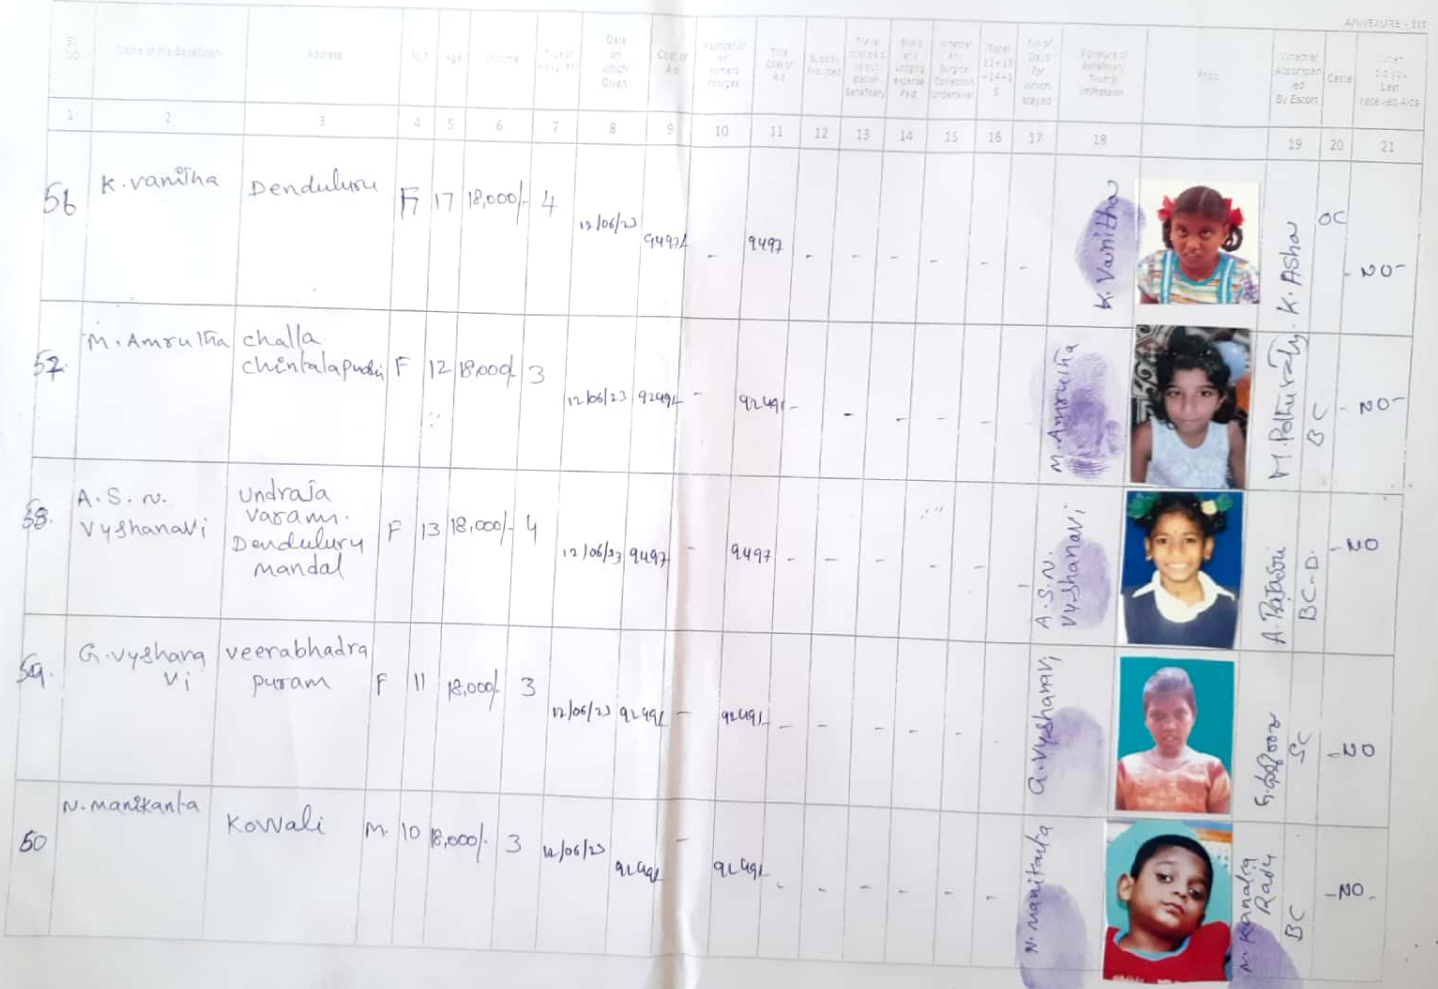 ANNEXURE - III
Name of the Beneficiary
Address
Age
Income
Date
on
which
Given
Cost of
Aid
Total
Cost of
Aid
Subsidy
Provided
Board
and
Lodging
expense
Paid
Whether
Any
Surgical
Correction
Undertaken
Total
12+13
+14+1
5
No of
Days
for
which
stayed
Signature of
Beneficiary
Thumb
Impression
Photo
Whether
Accompan
ied
By Escort
Caste
Last
received Aids
1 2 3 4 5 6 7 8 9 10 11 12 13 14 15 16 17 18 19 20 21
56 K. Vanitha Denduluru F 17 18,000/- 4 12/06/23 9497/- - 9497 - - - - - - K. Vanitha K. Asha OC - NO -
57. M. Amrutha challa
chintalapudi F 12 18,000/- 3 12/06/23 - - - - - - M. Amrutha BC - NO -
58. A. S. N.
Vyshanavi
Undraja
varam.
Denduluru
mandal
F 13 18,000/- 4 12/06/23 9497 - 9497 - - - - - - A. S. N.
Vyshanavi BC-D. - NO
59. G. Vyshana
vi
veerabhadra
puram
F 11 18,000/- 3 12/06/23 - - - - - - G. Vyshanavi SC - NO
50 N. Manikanta Kovvali M. 10 18,000/- 3 12/06/23 - - - - - - N. Manikanta BC - NO -